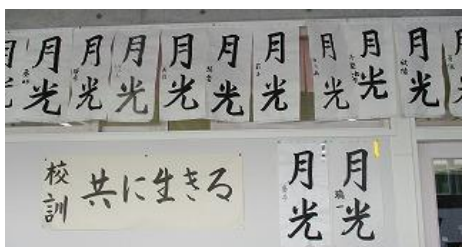 月光
月光
月光
月光
月光
月光
月光
月光
月光
月光
校訓 共に生きる
月光
月光